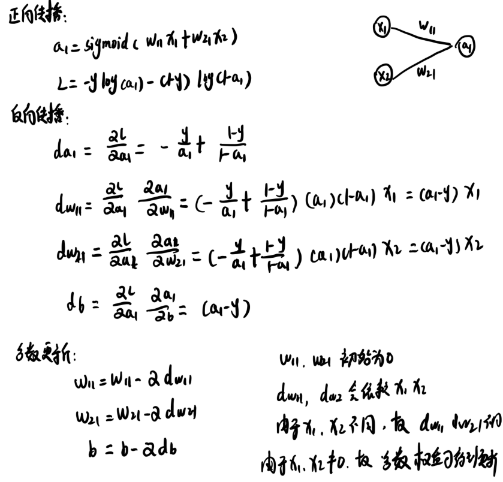 正向传播:
x₁ w₁₁ a₁
a₁ = sigmoid( w₁₁x₁ + w₂₁x₂)
L = -y log(a₁) - (1-y) log(1-a₁)
x₂ w₂₁
反向传播:
da₁ = ∂L/∂a₁ = - y/a₁ + (1-y)/(1-a₁)
dw₁₁ = ∂L/∂a₁ ∂a₁/∂w₁₁ = (- y/a₁ + (1-y)/(1-a₁)) (a₁)(1-a₁) x₁ = (a₁-y) x₁
dw₂₁ = ∂L/∂a₁ ∂a₁/∂w₂₁ = (- y/a₁ + (1-y)/(1-a₁)) (a₁)(1-a₁) x₂ = (a₁-y) x₂
db = ∂L/∂a₁ ∂a₁/∂b = (a₁-y)
参数更新:
w₁₁ = w₁₁ - α dw₁₁
w₂₁ = w₂₁ - α dw₂₁
b = b - α db
w₁₁, w₂₁ 初始为0
dw₁₁, dw₂ 会依赖 x₁ x₂
由于 x₁, x₂ 不同, 故 dw₁₁ dw₂₁ 不同
由于 x₁, x₂ ≠ 0, 故 参数 更新